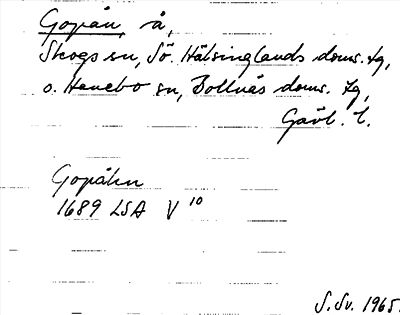 Gopån, å,
Skogs sn, Sö. Hälsinglands doms. tg,
o. Hanebo sn, Bollnäs doms. tg,
Gävl. l.
Gopåhn
1689 LSA V 10
S. Sv. 1965.